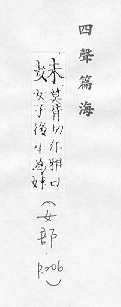 四聲篇海
妹
莫背切尔雅曰
女子後生為妹
(女部 P.006)